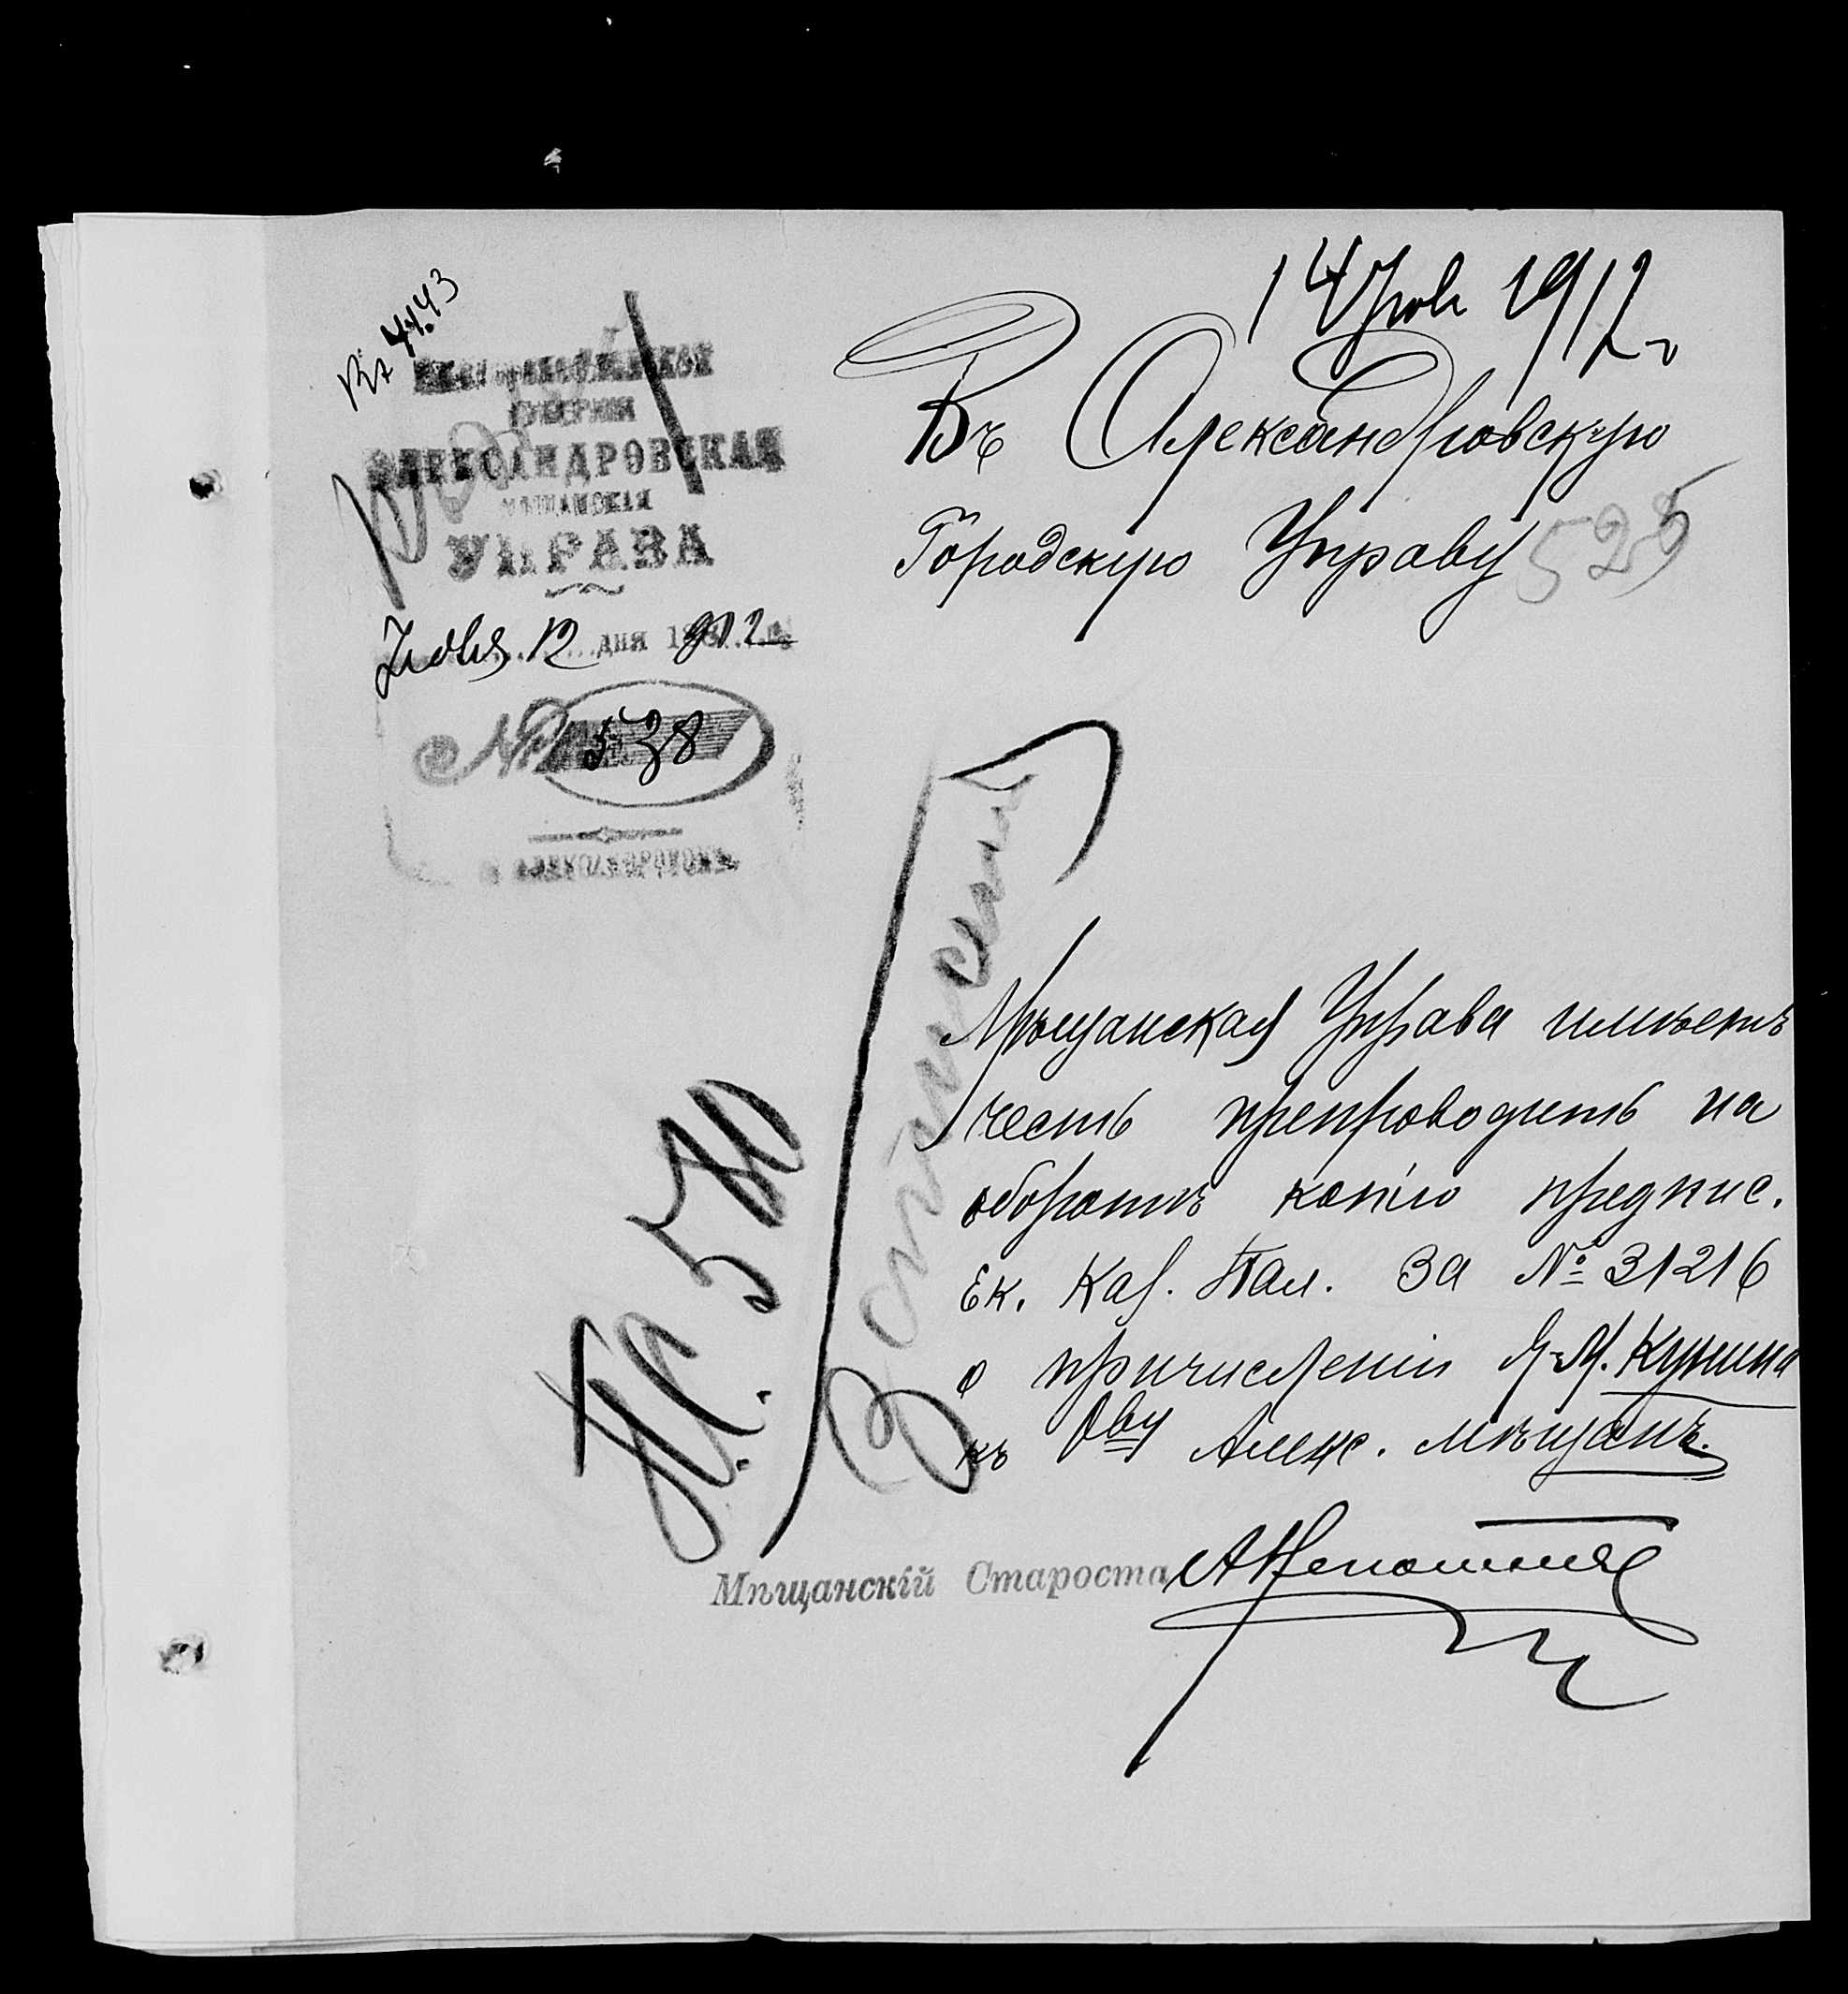 14 Іюля 1912 г.
Вх 4443
ЕКАТЕРИНОСЛАВСКОЙ
ГУБЕРНІИ
АЛЕКСАНДРОВСКАЯ
МѢЩАНСКАЯ
УПРАВА
Іюля 12 дня 1912 г.
№ 538
Г. АЛЕКСАНДРОВСКЪ
Въ Александровскую
Городскую Управу
525
Мѣщанская Управа имѣетъ
честь препроводить на
оборотѣ копію предпис.
Ек. Каз. Пал. за № 31216
о причисленіи Я-М. Кунина
къ Ову Алекс. мѣщанъ.
Мѣщанскій Староста